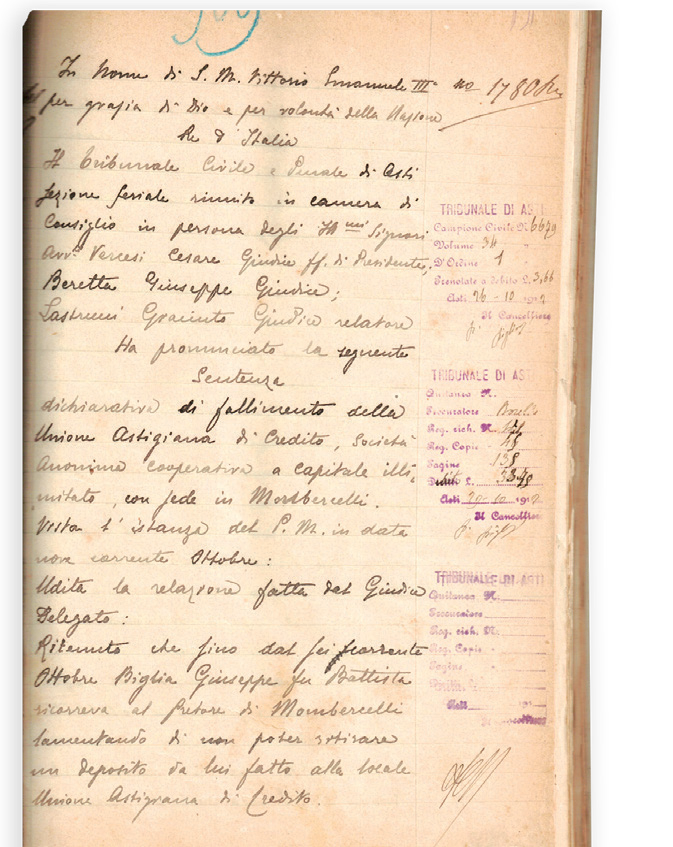 In Nome di S. M. Vittorio Emanuele III° no 1780
per grazia di Dio e per volontà della Nazione
Re d'Italia
Il Tribunale Civile e Penale di Asti
sezione feriale riunito in camera di
Consiglio in persona degli Ill mi Signori
Avv° Vercesi Cesare Giudice ff. di Presidente;
Beretta Giuseppe Giudice;
Lastrucci Giacinto Giudice relatore
Ha pronunciato la seguente
Sentenza
dichiarativa di fallimento della
Unione Astigiana di Credito, Società
Anonima cooperativa a capitale illi
mitato, con sede in Mombercelli.
Vista l'istanza del P. M. in data
nove corrente Ottobre:
Udita la relazione fatta dal Giudice
Delegato:
Ritenuto che fino dal sei corrente
Ottobre Biglia Giuseppe fu Battista
ricorreva al Pretore di Mombercelli
lamentando di non poter ritirare
un deposito da lui fatto alla locale
Unione Astigiana di Credito.
TRIBUNALE DI ASTI
Campione Civile N. 6679
Volume 34
D'Ordine 1
Prenotate a debito L. 3,66
Asti 26 - 10 - 191
Il Cancelliere
TRIBUNALE DI ASTI
Quitanza N.
Procuratore
Reg. rich. N.
Reg. Copie
Pagine 138
Asti 191
Il Cancelliere
TRIBUNALE DI ASTI
Quitanza N.
Procuratore
Reg. rich. N.
Reg. Copie
Pagine
Asti 191
Il Cancelliere